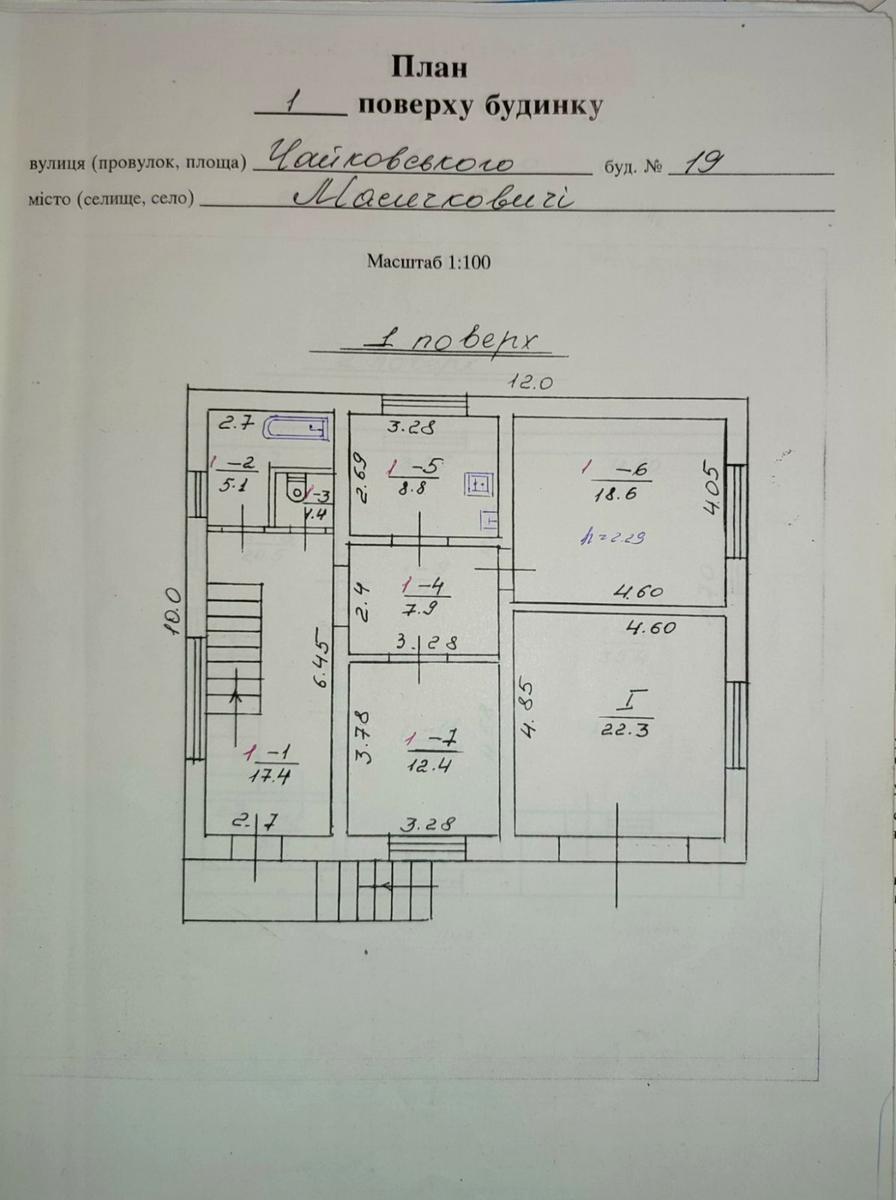 План
1 поверху будинку
вулиця (провулок, площа) Чайковського буд. № 19
місто (селище, село)
Масштаб 1:100
1 поверх
12.0
2.7
3.28
1-2
5.1
1-3
1.4
2.69
1-5
8.8
1-6
18.6
4.05
h=2.29
4.60
10.0
2.4
1-4
7.9
3.28
4.60
6.45
4.85
I
22.3
1-1
17.4
3.78
1-7
12.4
2.7
3.28